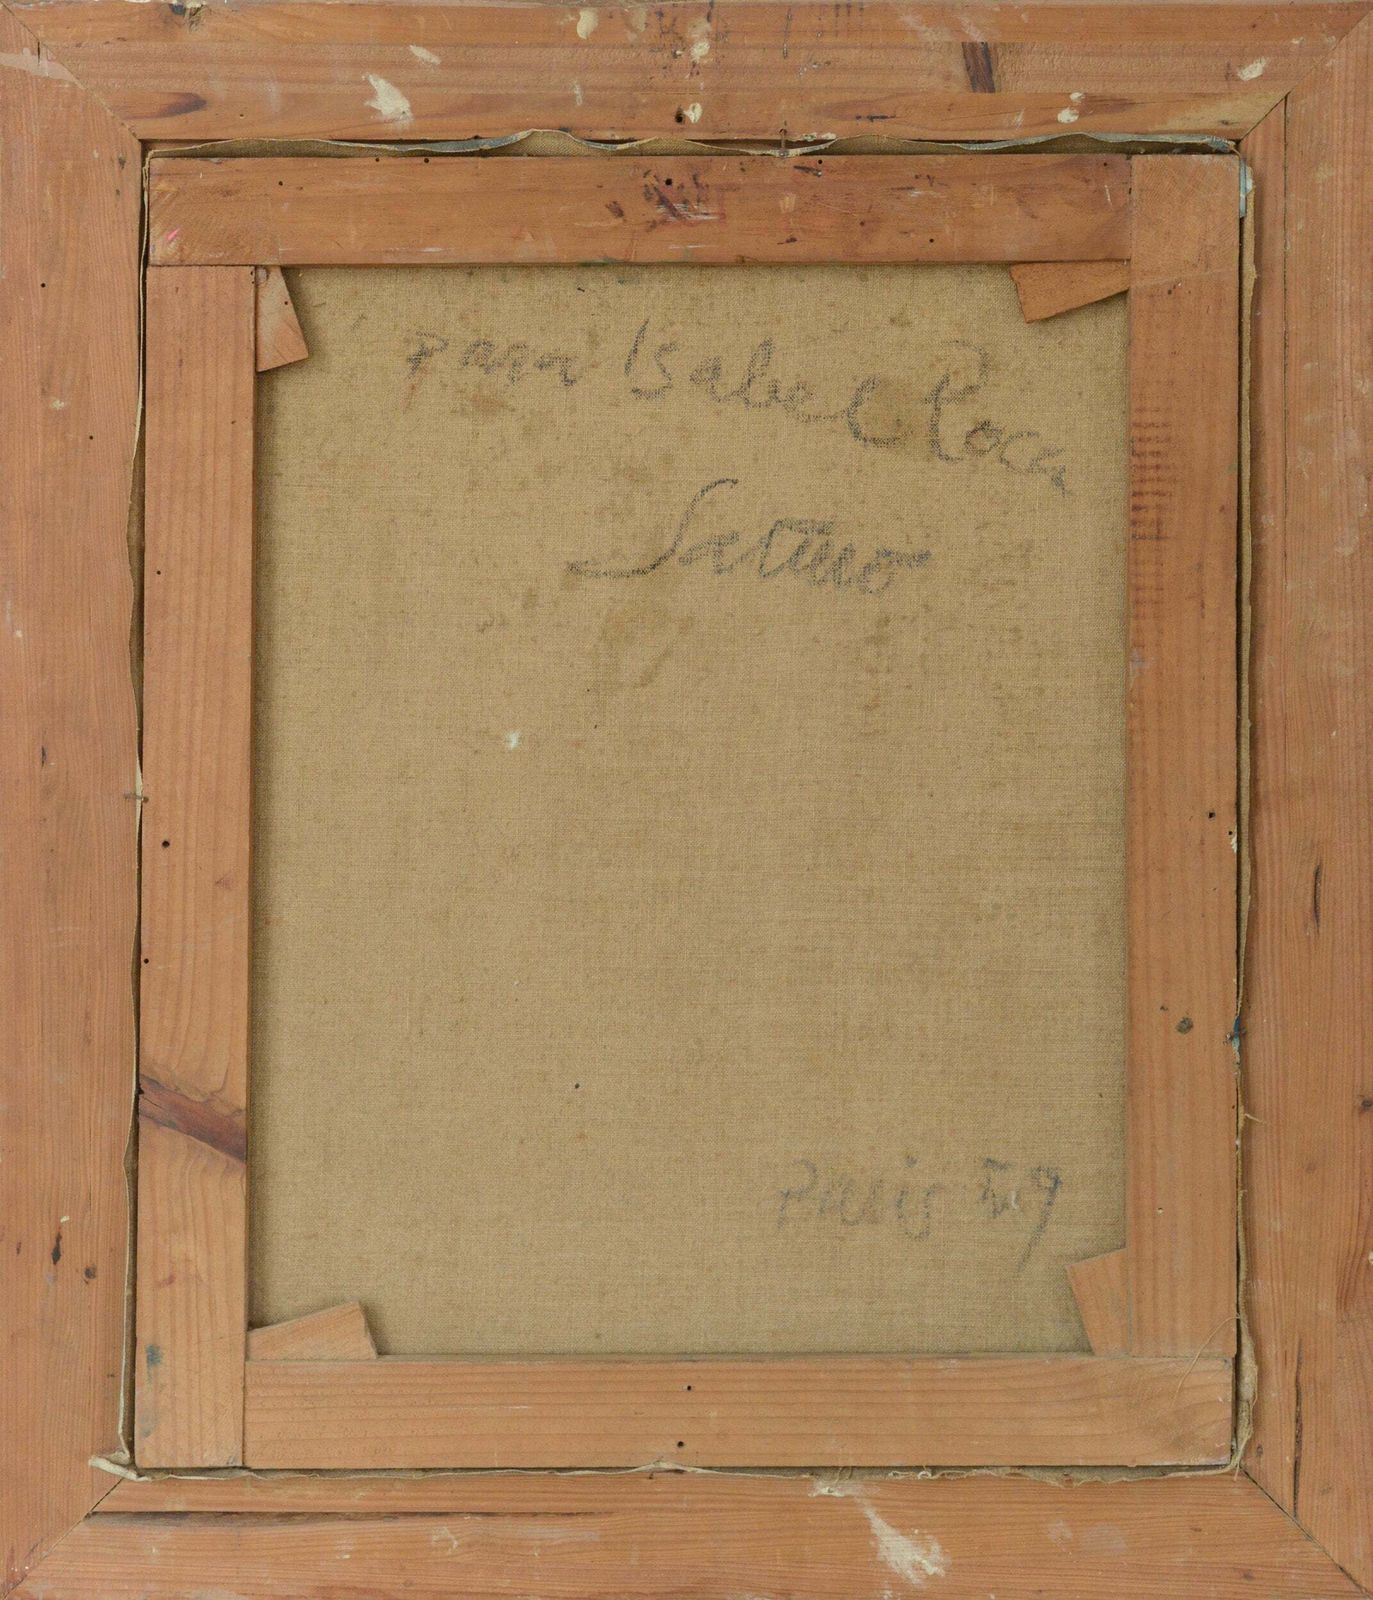 para Isabel Roca
Satuno
Paris 59